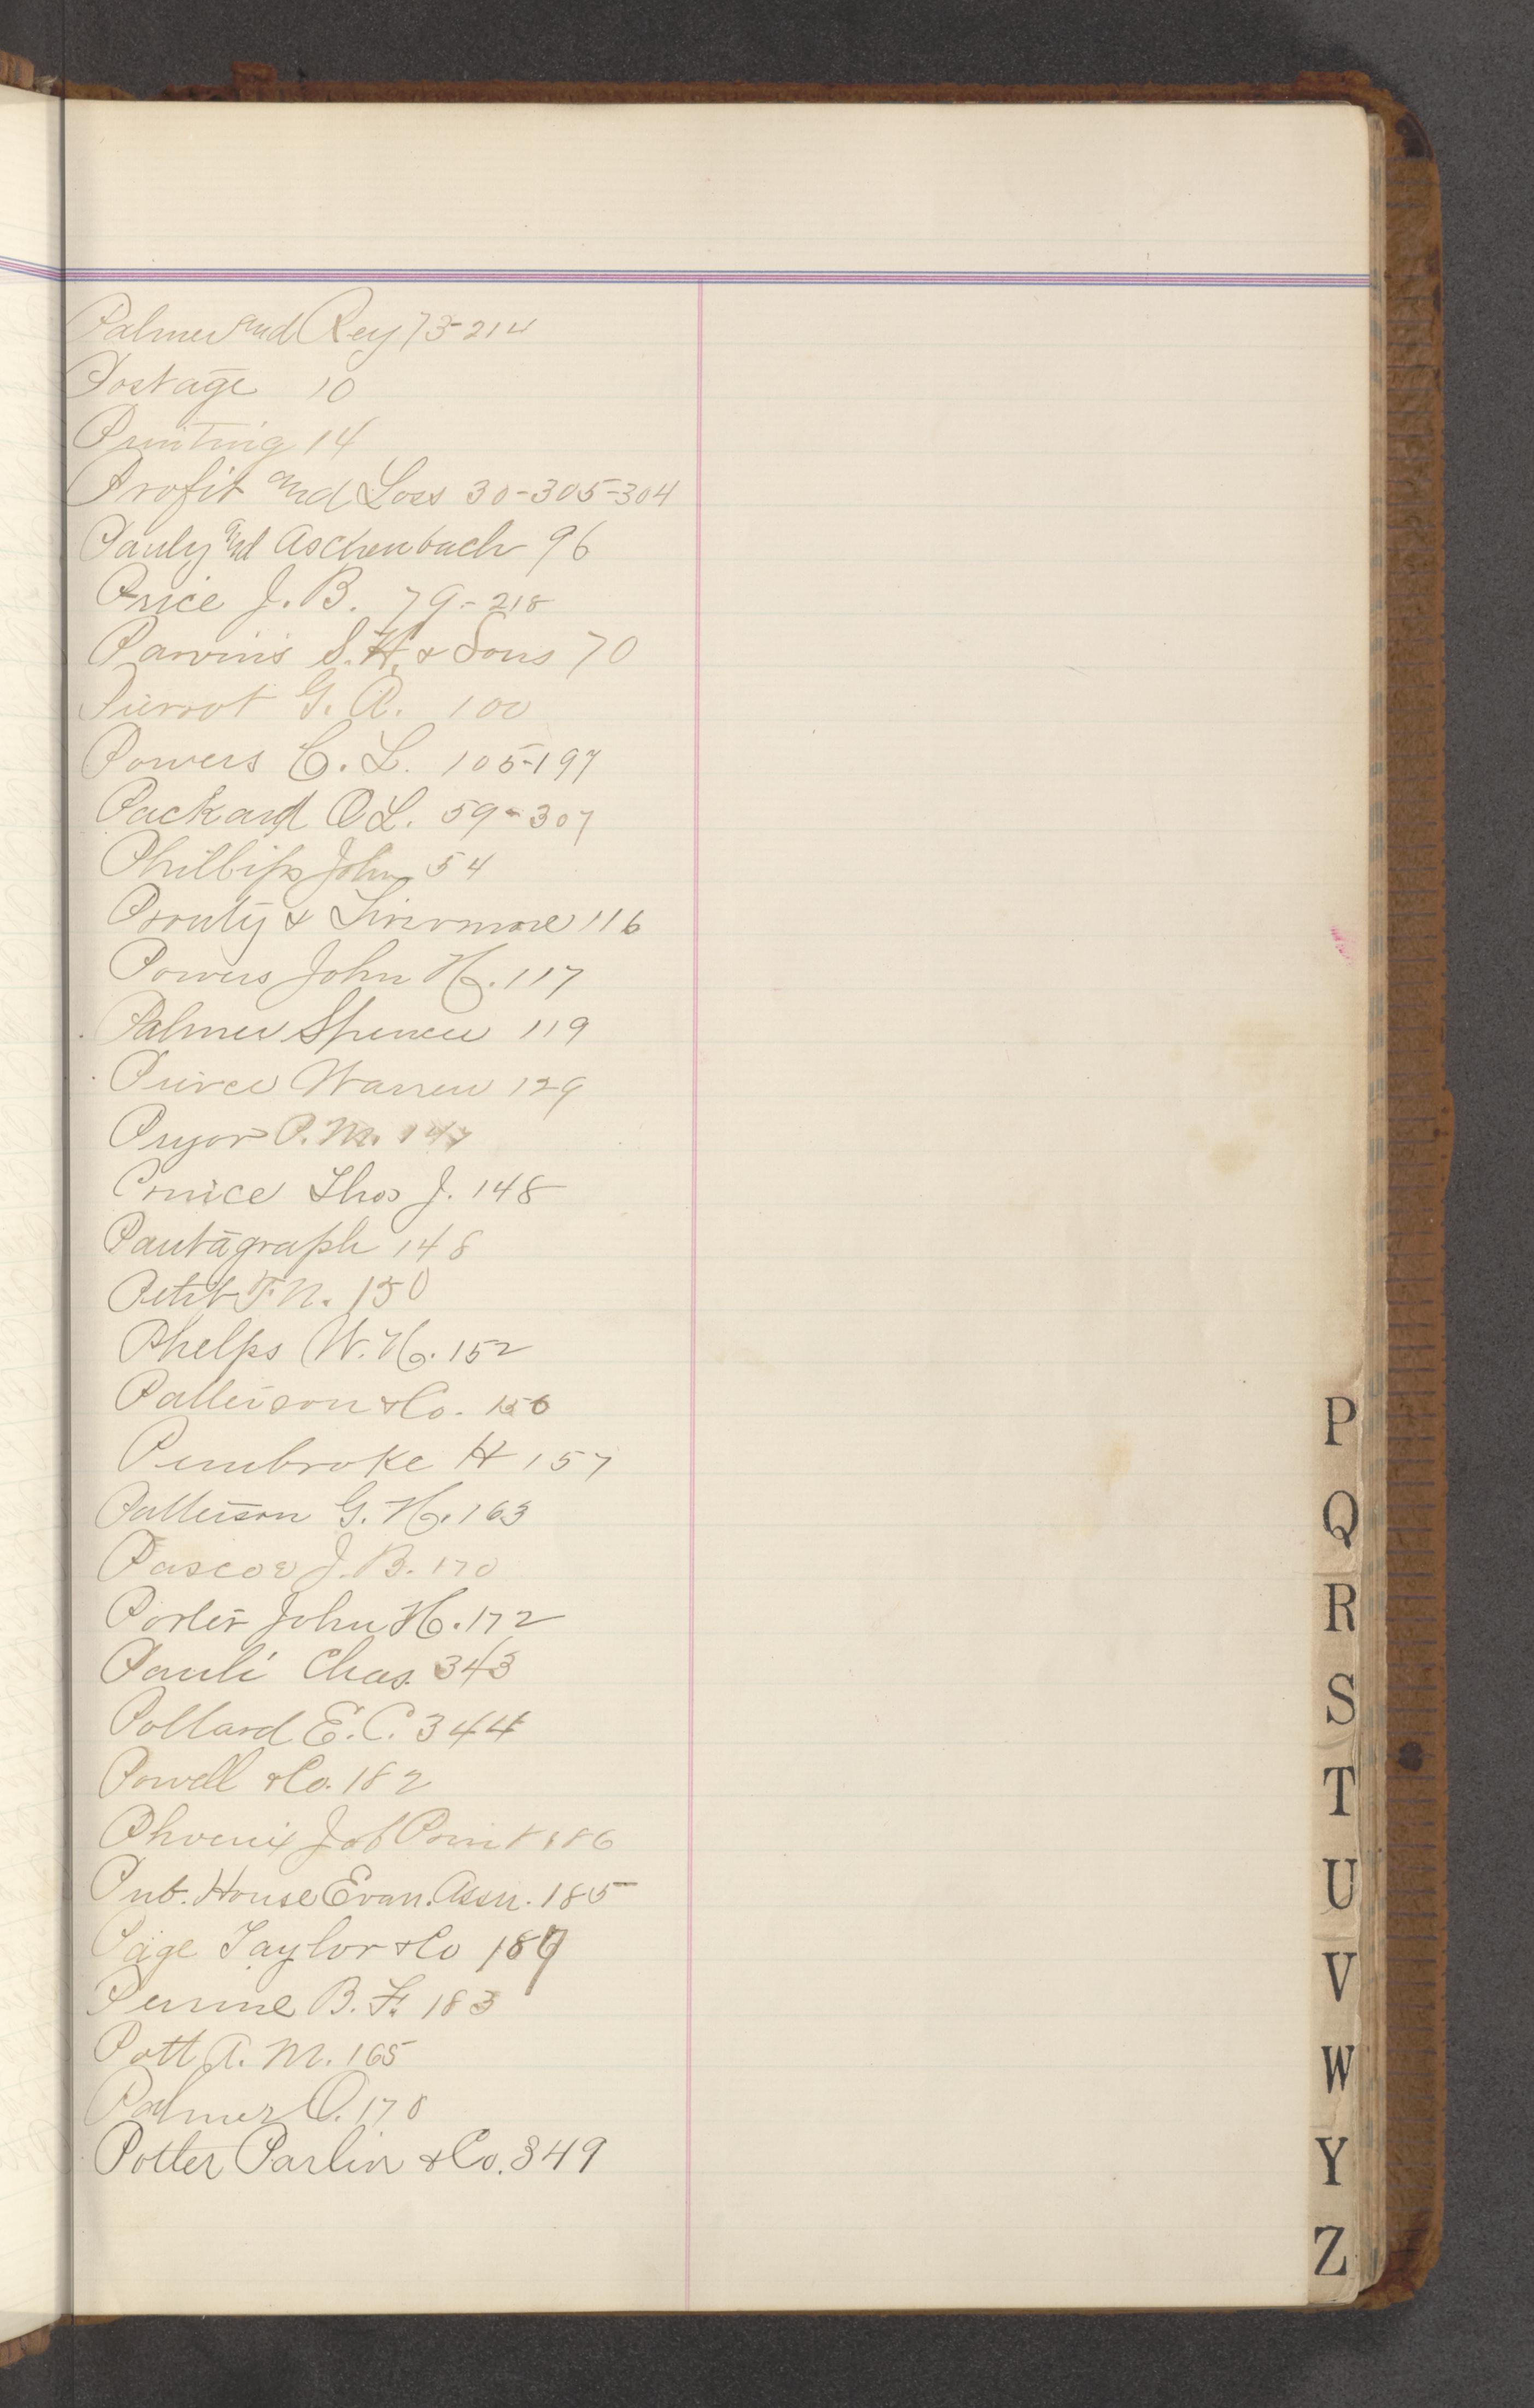 Palmer and Rey 73-214
Postage 10
Printing 14
Profit and Loss 30-305-304
Pauly and Aschenbach 96
Price J. B. 79-218
Parvin's S. H. & Sons 70
Pierrot G. A. 100
Powers C. L. 105-197
Packard O L. 59-307
Phillips John 54
Prouty & Livermore 116
Powers John H. 117
Palmer Spencer 119
Peirce Warren 129
Pryor P. M. 147
Prince Thos J. 148
Pantagraph 148
Petit F. N. 150
Phelps W. H. 152
Patterson & Co. 156
Pembroke H 157
Patterson G. H. 163
Pascoe J. B. 170
Porter John H. 172
Pauli Chas. 343
Pollard E. C. 344
Powell & Co. 182
Phoenix Job Print 186
Pub. House Evan. Assn. 185
Page Taylor & Co 189
Perrine B. F. 183
Pott A. M. 165
Palmer O. 178
Potter Parlin & Co. 349
P
Q
R
S
T
U
V
W
Y
Z